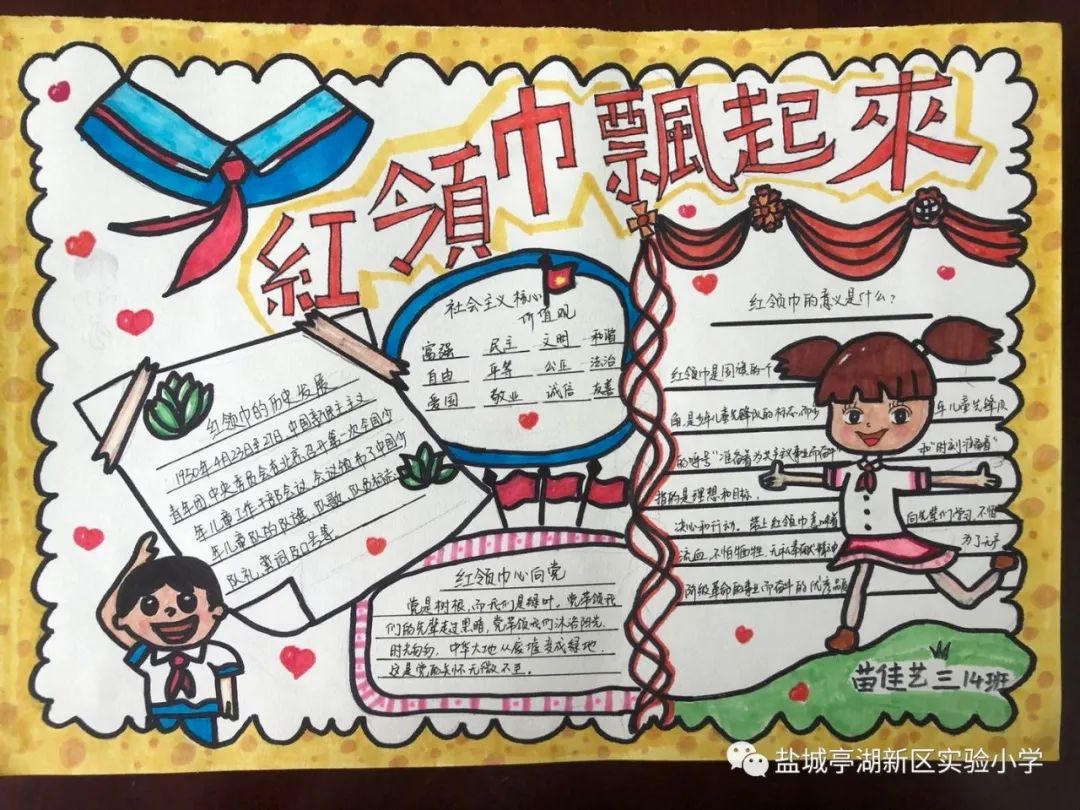 紅領巾飄起來
社会主义核心
价值观
富强 民主 文明 和谐
自由 平等 公正 法治
爱国 敬业 诚信 友善
红领巾的历史发展
1950年4月23日至27日,中国新民主主义
青年团中央委员会在北京召开第一次全国少
年儿童工作干部会议,会议颁布了中国少
年儿童队的队旗、队歌、队员标志、
队礼、誓词和口号等。
红领巾心向党
党是树根,而我们是绿叶,党带领我
们的先辈走过黑暗,党带领我们沐浴阳光,
时光匆匆,中华大地从废墟变成绿地,
这是党的关怀无微不至。
红领巾的意义是什么?
红领巾是国旗的一个
角,是少年儿童先锋队的标志,而少 年儿童先锋队
的呼号"准备着为共产主义事业而奋斗" 和"时刻准备着"
指的是理想和目标,
决心和行动。带上红领巾意味着 向先辈们学习,不怕
流血,不怕牺牲,无私奉献精神 为了无产
阶级革命的事业而奋斗的优秀品质
苗佳艺 三14班
盐城亭湖新区实验小学